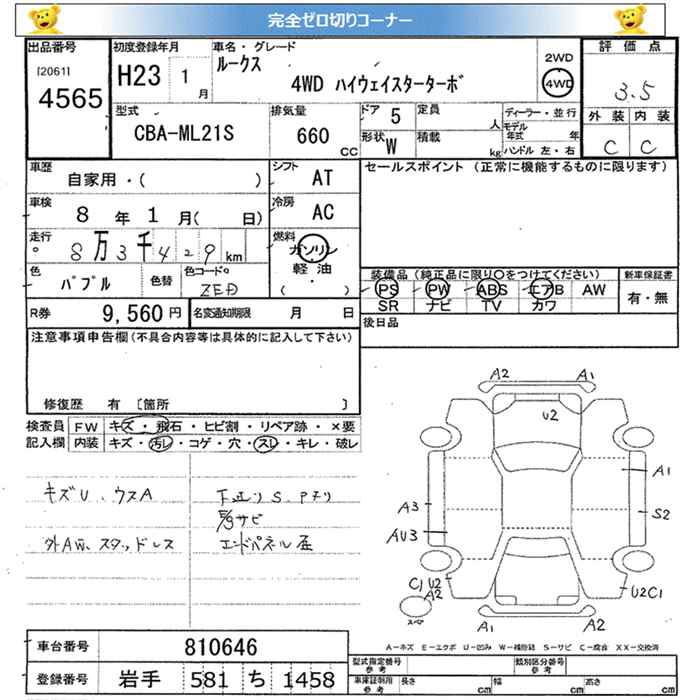 完全ゼロ切りコーナー
出品番号 初度登録年月 車名・グレード 評価点
[20611] 4565
H23 1月
ルークス
4WD ハイウェイスターターボ
2WD
4WD
3.5
外装 内装
C C
型式 CBA-ML21S
排気量 660 CC
ドア 5 定員 人
形状 W 積載 kg
ディーラー・並行
モデル年式 年
ハンドル 左・右
車歴 自家用・( )
シフト AT
セールスポイント (正常に機能するものに限ります)
車検 8年1月( 日)
冷房 AC
走行 8万3千429km
燃料 ガソリン
軽油
( ・ )
色 パブル 色替 色コードNo ZED
装備品 (純正品に限り○をつけてください) 新車保証書
PS PW ABS エアB AW
SR ナビ TV カワ
有・無
R券 9,560円 名変通知期限 月 日
後日品
注意事項申告欄(不具合内容等は具体的に記入して下さい)
修復歴 有 [箇所 ]
検査員 FW キズ・飛石・ヒビ割・リペア跡・×要
記入欄 内装 キズ・汚レ・コゲ・穴・スレ・キレ・破レ
キズU、ウスA
下廻りS、Pヌリ
サビ
外AW、スタッドレス
エンドパネル歪
A2 A1
U2
A1
A3
S2
AU3
C1 U2
A2
U2C1
スペア
A1 A2
A-キズ E-エクボ U-凹み W-補修跡 S-サビ C-腐食 XX-交換済
車台番号 810646
登録番号 岩手 581 ち 1458
型式指定番号 参考 類別区分番号 参考
車庫証明用 参考 長さ cm 幅 cm 高さ cm